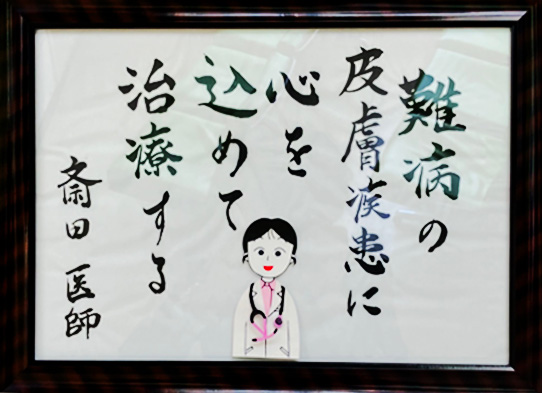 難病の
皮膚疾患に
心を
込めて
治療する
斎田 医師